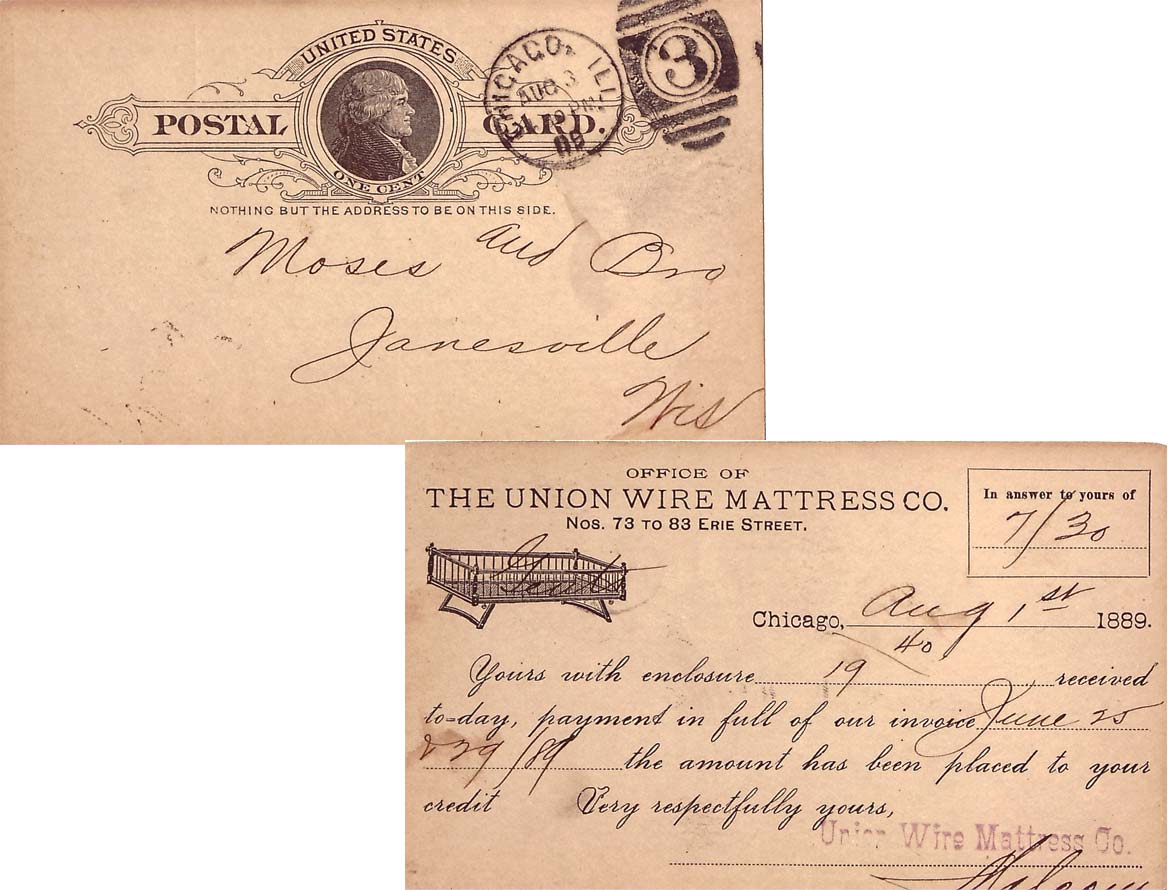 UNITED STATES
POSTAL CARD.
ONE CENT
NOTHING BUT THE ADDRESS TO BE ON THIS SIDE.
CHICAGO ILL
AUG 3
PM
3
Moses and Bro
Janesville
Wis
OFFICE OF
THE UNION WIRE MATTRESS CO.
Nos. 73 TO 83 ERIE STREET.
In answer to yours of
7/30
Chicago, Aug 1st 1889.
Yours with enclosure 19 40 received
to-day, payment in full of our invoice June 25
& 29/89 the amount has been placed to your
credit Very respectfully yours,
Union Wire Mattress Co.